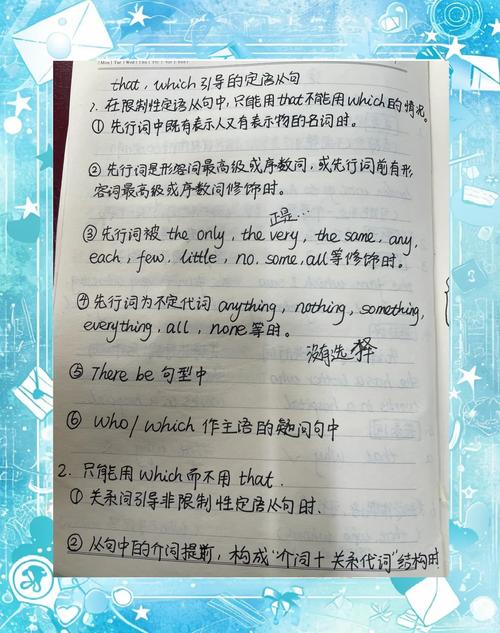 Mon Tue Wed Thu Fri Sat Sun
that, which 引导的定语从句
1. 在限制性定语从句中,只能用that不能用which的情况。
① 先行词中既有表示人又有表示物的名词时。
② 先行词是形容词最高级或序数词,或先行词前有形
容词最高级或序数词修饰时。
正是…
③ 先行词被 the only, the very, the same, any,
each, few, little, no. some, all等修饰时。
④ 先行词为不定代词 anything, nothing, something,
everything, all, none等时。
没有选择
⑤ There be 句型中
⑥ who/which 作主语的疑问句中
2. 只能用which而不用that.
① 关系词引导非限制性定语从句时.
② 从句中的介词提前,构成"介词+关系代词"结构时